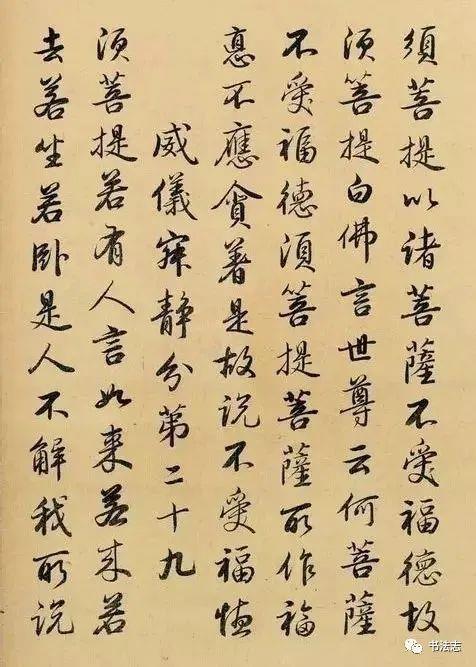 須菩提以諸菩薩不受福德故
須菩提白佛言世尊云何菩薩
不受福德須菩提菩薩所作福
悳不應貪著是故說不受福悳
威儀寂靜分第二十九
須菩提若有人言如来若来若
去若坐若卧是人不解我所説
书法志